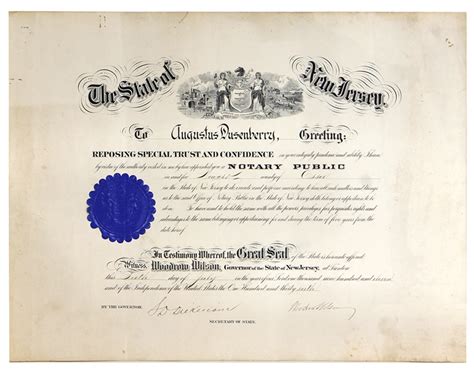 The State of New Jersey,
To Augustus Dusenberry, Greeting:
REPOSING SPECIAL TRUST AND CONFIDENCE in your integrity, prudence and ability, I have
by virtue of the authority vested in me by law appointed you a NOTARY PUBLIC
in and for county of Essex
in the State of New Jersey
and Office of Notary Public in the State of New Jersey
To have and to hold the same with all the powers, privileges, fees, perquisites, rights and
advantages to the same belonging or appertaining for and during the term of five years from the
date hereof
In Testimony Whereof, the Great Seal of the State is hereunto affixed
Witness, Woodrow Wilson, Governor of the State of New Jersey, at Trenton
this day of July in the year of our Lord one thousand nine hundred and eleven
and of the Independence of the United States the One Hundred and thirty sixth.
BY THE GOVERNOR.
SECRETARY OF STATE.